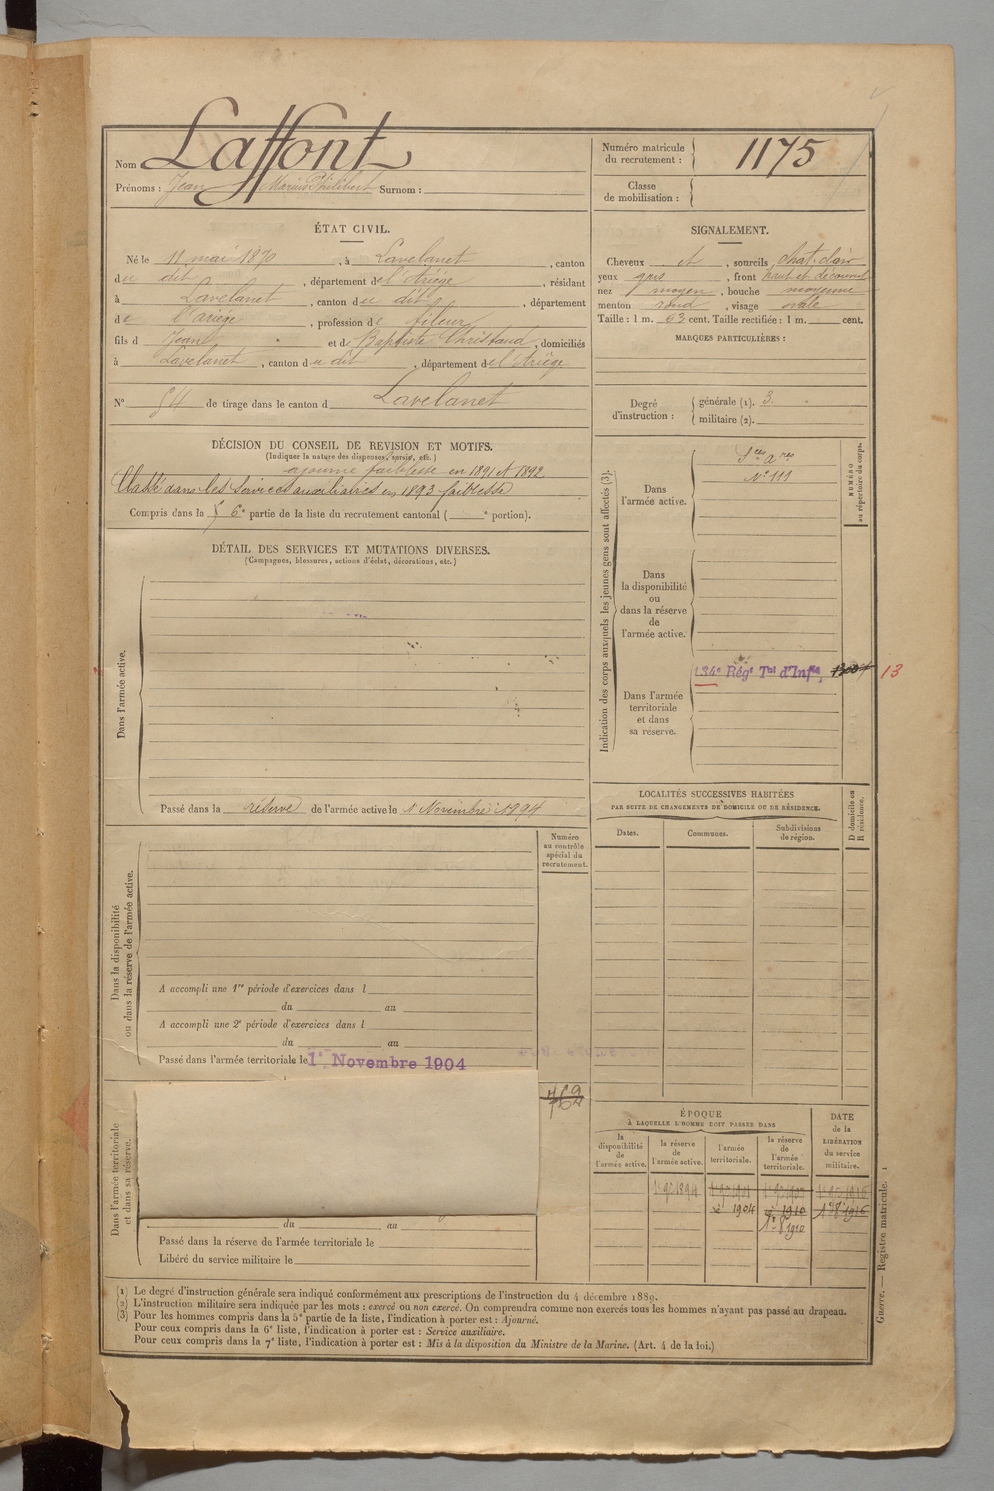 Nom Laffont
Prénoms : Jean Marius Philibert Surnom :
Numéro matricule du recrutement : 1175
Classe de mobilisation :
ÉTAT CIVIL.
Né le 11 mai 1870, à Lavelanet, canton
du dit, département de l'Ariège, résidant
à Lavelanet, canton du dit, département
de l'Ariège, profession de fileur
fils d Jean et d Baptiste Christaud, domiciliés
à Lavelanet, canton du dit, département de l'Ariège
N° 54 de tirage dans le canton d Lavelanet
SIGNALEMENT.
Cheveux et, sourcils chat. clair
yeux gris, front haut et découvert
nez moyen, bouche moyenne
menton rond, visage ovale
Taille : 1 m. 63 cent. Taille rectifiée : 1 m. cent.
MARQUES PARTICULIÈRES :
Degré d'instruction : générale (1). 3.
militaire (2).
DÉCISION DU CONSEIL DE REVISION ET MOTIFS.
(Indiquer la nature des dispenses, sursis, etc.)
ajourné faiblesse en 1891 et 1892
Classé dans les services auxiliaires en 1893 faiblesse
Compris dans la 6e partie de la liste du recrutement cantonal ( e portion).
DÉTAIL DES SERVICES ET MUTATIONS DIVERSES.
(Campagnes, blessures, actions d'éclat, décorations, etc.)
Dans l'armée active.
Passé dans la réserve de l'armée active le 1 Novembre 1894
Indication des corps auxquels les jeunes gens sont affectés (3).
NUMÉRO au répertoire du corps.
Dans l'armée active.
Sces Aires
N° 111
Dans la disponibilité ou dans la réserve de l'armée active.
Dans l'armée territoriale et dans sa réserve.
134e Régt Tal d'Infie, 13
LOCALITÉS SUCCESSIVES HABITÉES
PAR SUITE DE CHANGEMENTS DE DOMICILE OU DE RÉSIDENCE.
Dates. Communes. Subdivisions de région.
D domicile ou R résidence.
Dans la disponibilité ou dans la réserve de l'armée active.
Numéro au contrôle spécial du recrutement.
A accompli une 1re période d'exercices dans l
du au
A accompli une 2e période d'exercices dans l
du au
Passé dans l'armée territoriale le 1er Novembre 1904
762
Dans l'armée territoriale et dans sa réserve.
du au
Passé dans la réserve de l'armée territoriale le
Libéré du service militaire le
ÉPOQUE
À LAQUELLE L'HOMME DOIT PASSER DANS
la disponibilité de l'armée active. la réserve de l'armée active. l'armée territoriale. la réserve de l'armée territoriale.
DATE de la LIBÉRATION du service militaire.
1904 1910
Guerre. — Registre matricule. 1
(1) Le degré d'instruction générale sera indiqué conformément aux prescriptions de l'instruction du 4 décembre 1889.
(2) L'instruction militaire sera indiquée par les mots : exercé ou non exercé. On comprendra comme non exercés tous les hommes n'ayant pas passé au drapeau.
(3) Pour les hommes compris dans la 5e partie de la liste, l'indication à porter est : Ajourné.
Pour ceux compris dans la 6e liste, l'indication à porter est : Service auxiliaire.
Pour ceux compris dans la 7e liste, l'indication à porter est : Mis à la disposition du Ministre de la Marine. (Art. 4 de la loi.)